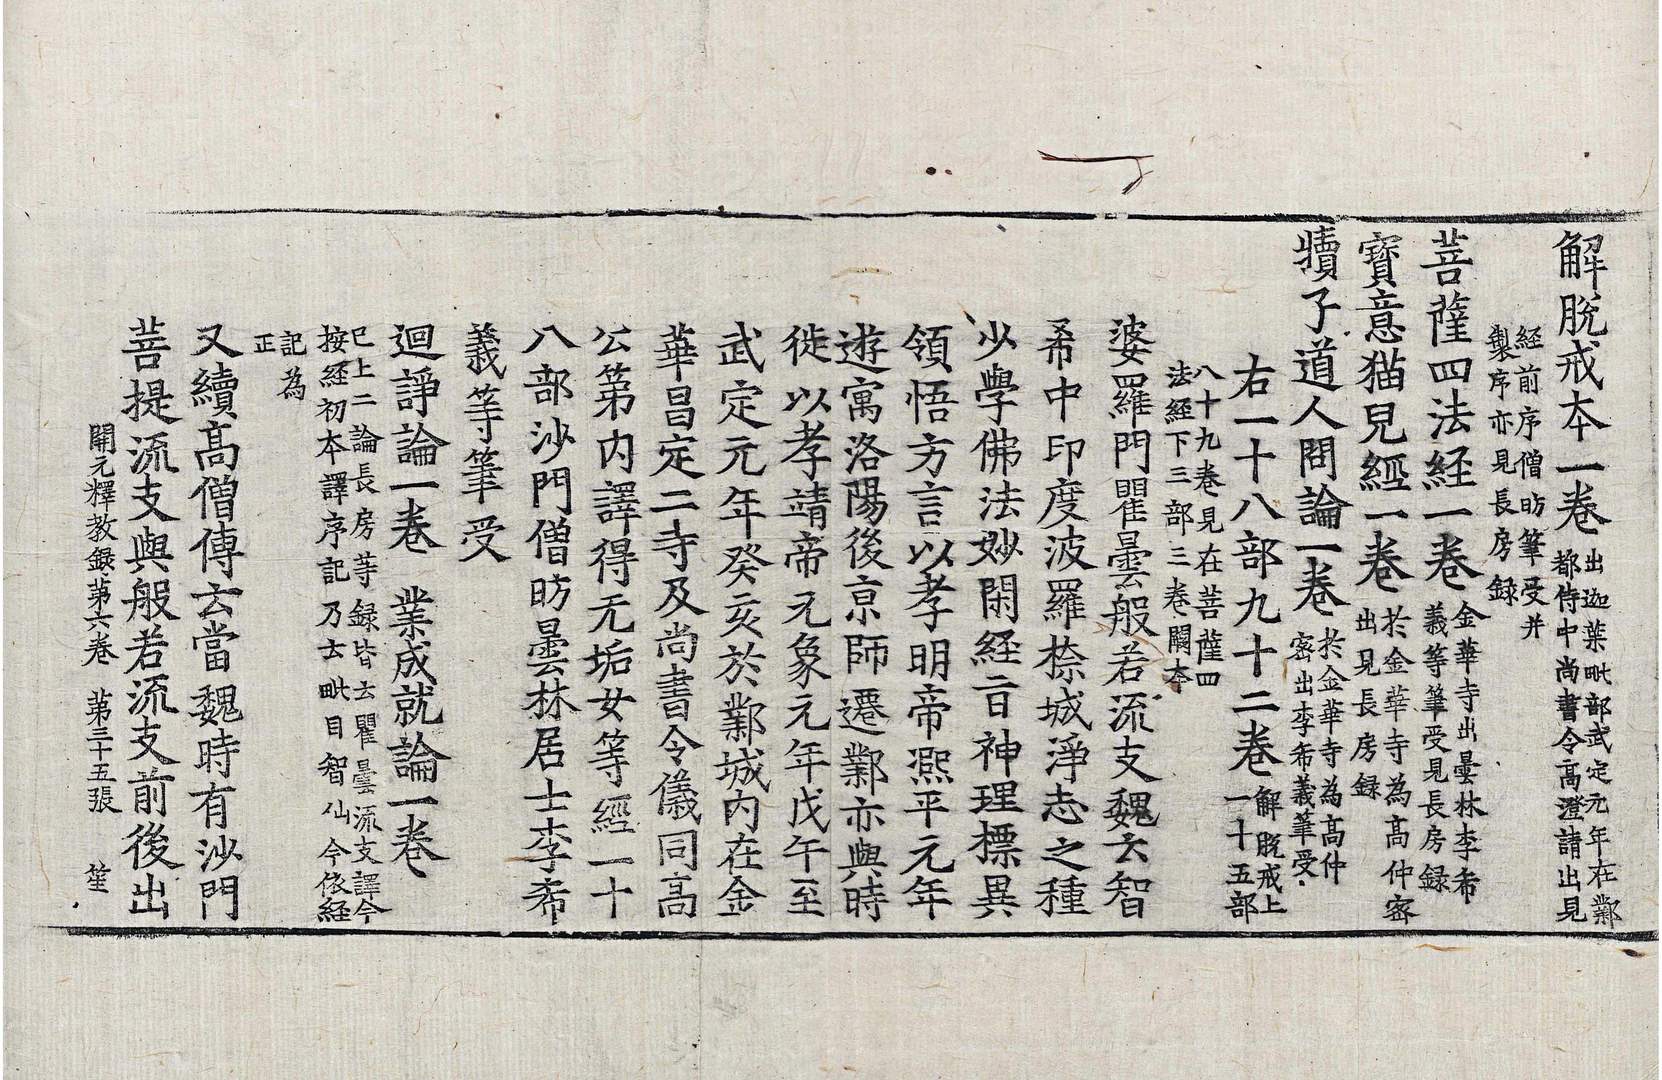 解脫戒本一卷出迦葉毗部武定元年在鄴都侍中尚書令高澄請出見
經前序僧昉筆受并製序亦見長房録
菩薩四法經一卷金華寺出曇林李希義等筆受見長房録
寶意猫兒經一卷於金華寺為高仲密出見長房録
犢子道人問論一卷於金華寺為高仲密出李希義筆受
右一十八部九十二卷解脫戒上一十五部
八十九卷見在菩薩四法經下三部三卷闕本
婆羅門瞿曇般若流支魏云智
希中印度波羅㮈城淨志之種
少學佛法妙閑經旨神理標異
領悟方言以孝明帝熈平元年
遊寓洛陽後京師遷鄴亦與時
徙以孝靖帝元象元年戊午至
武定元年癸亥於鄴城内在金
華昌定二寺及尚書令儀同高
公第内譯得无垢女等經一十
八部沙門僧昉曇林居士李希
義等筆受
迴諍論一卷　業成就論一卷
已上二論長房等録皆云瞿曇流支譯今按經初本譯序記乃士毗目智仙今依經
記為正
又續高僧傳云當魏時有沙門
菩提流支與般若流支前後出
開元釋教録第六卷　第三十五張　笙